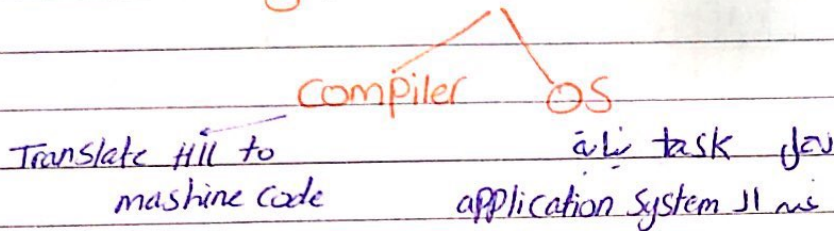 Compiler OS
Translate HLL to
mashine Code
بعمل task نيابة
عن ال application system